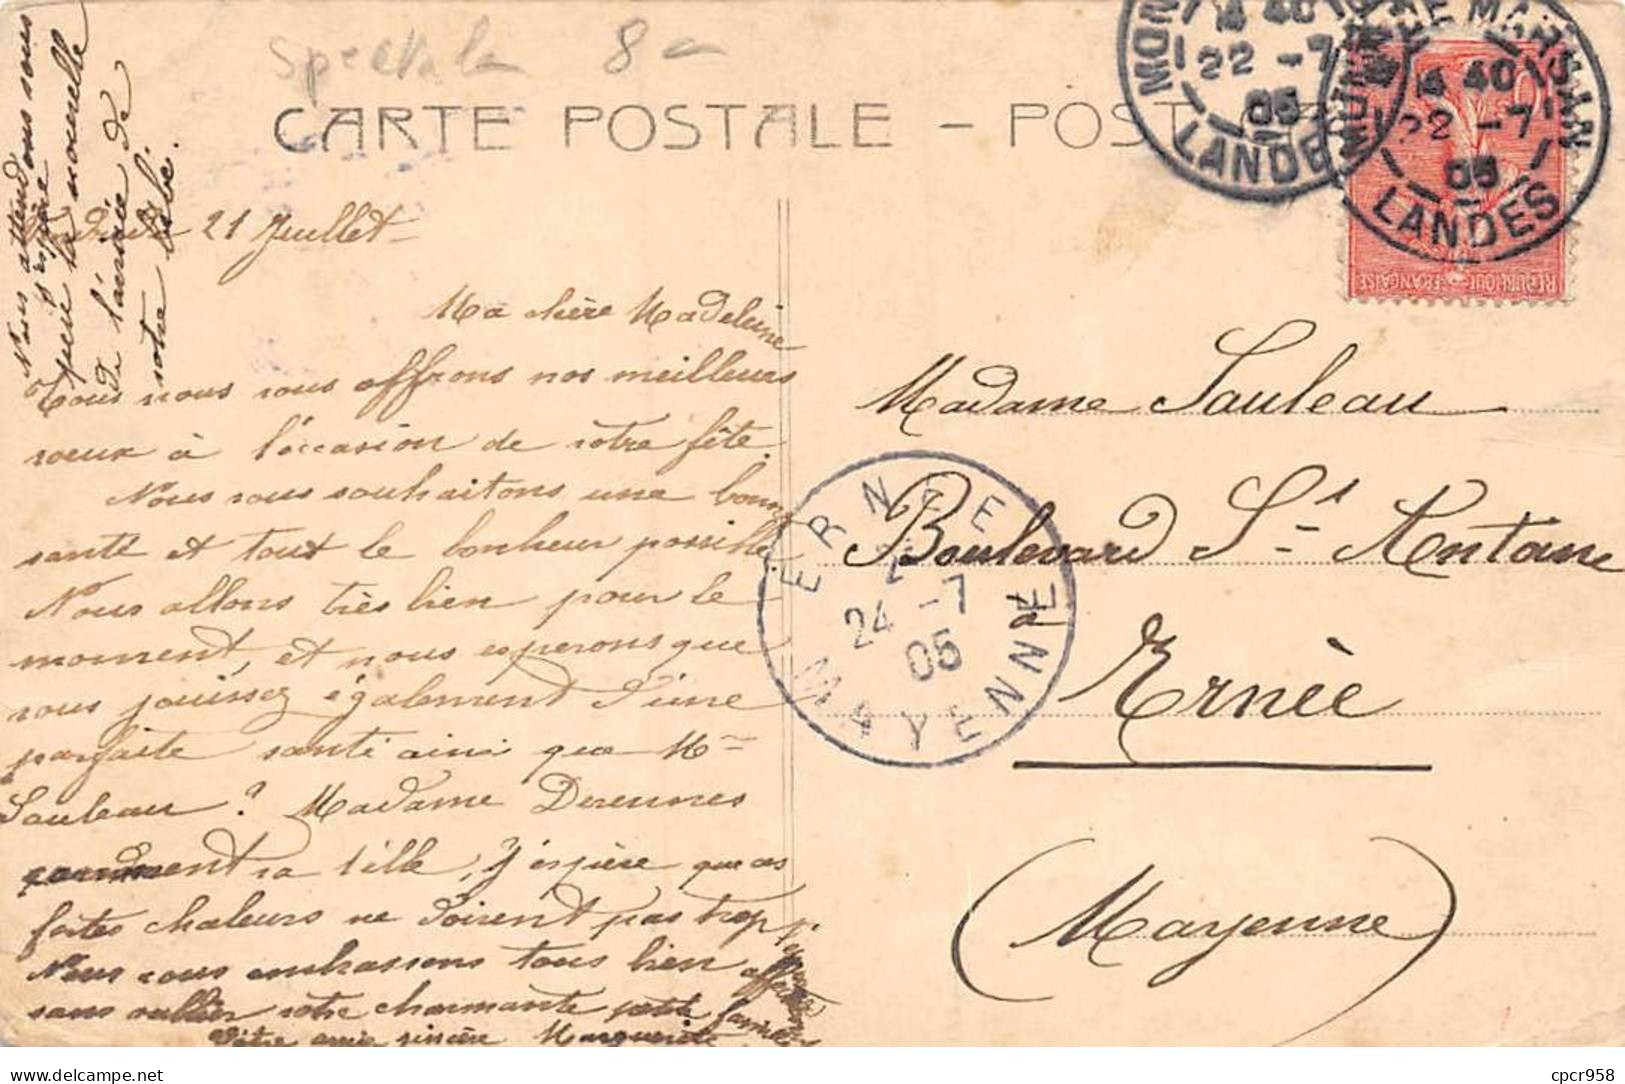 Spectacle 8-
CARTE POSTALE - POST
MONT DE MARSAN
14 40
22 -7
05
LANDES
MONT DE MARSAN
14 40
22 -7
05
LANDES
REPUBLIQUE FRANÇAISE
Vendredi 21 Juillet
Ma chère Madeleine
Tous nous vous offrons nos meilleurs
voeux à l'occasion de votre fête.
Nous vous souhaitons une bonne
santé et tout le bonheur possible.
Nous allons très bien pour le
moment, et nous esperons que
vous jouissez également d'une
parfaite santé ainsi que Mr
Sauleau ? Madame
comment va elle, J'espère que ces
fortes chaleurs ne doivent pas trop
Nous vous embrassons tous bien
sans oublier votre charmante petite famille
Votre amie sincère Marguerite
Nous attendons sous
peu la nouvelle
j'espère
de l'arrivée de
votre bébé.
Madame Sauleau
Boulevard St Antoine
à
Ernée
(Mayenne)
ERNÉE
24 -7
05
MAYENNE
cpcr958